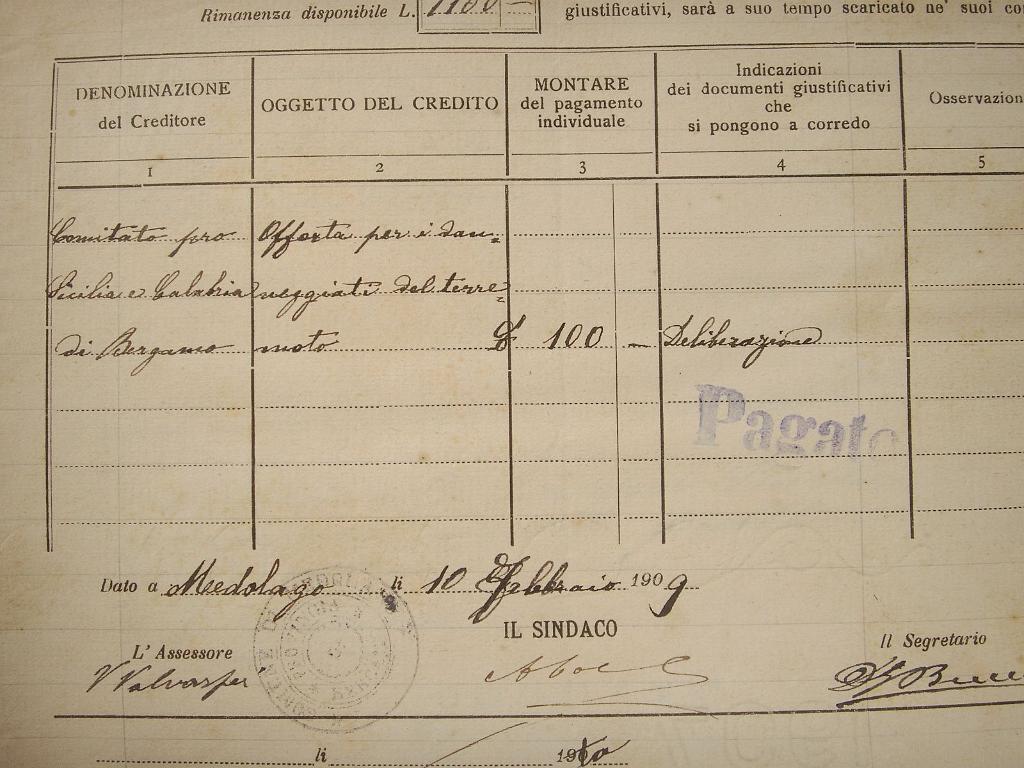 Rimanenza disponibile L. 1100 —
giustificativi, sarà a suo tempo scaricato ne' suoi
DENOMINAZIONE
del Creditore
OGGETTO DEL CREDITO
MONTARE
del pagamento
individuale
Indicazioni
dei documenti giustificativi
che
si pongono a corredo
Osservazion
1 2 3 4 5
Comitato pro Offerta per i dan=
Sicilia e Calabria neggiati del terre=
di Bergamo moto £ 100 — Deliberazione
Pagato
Dato a Medolago li 10 Febbraio 1909
IL SINDACO
L' Assessore
Il Segretario
li 1910